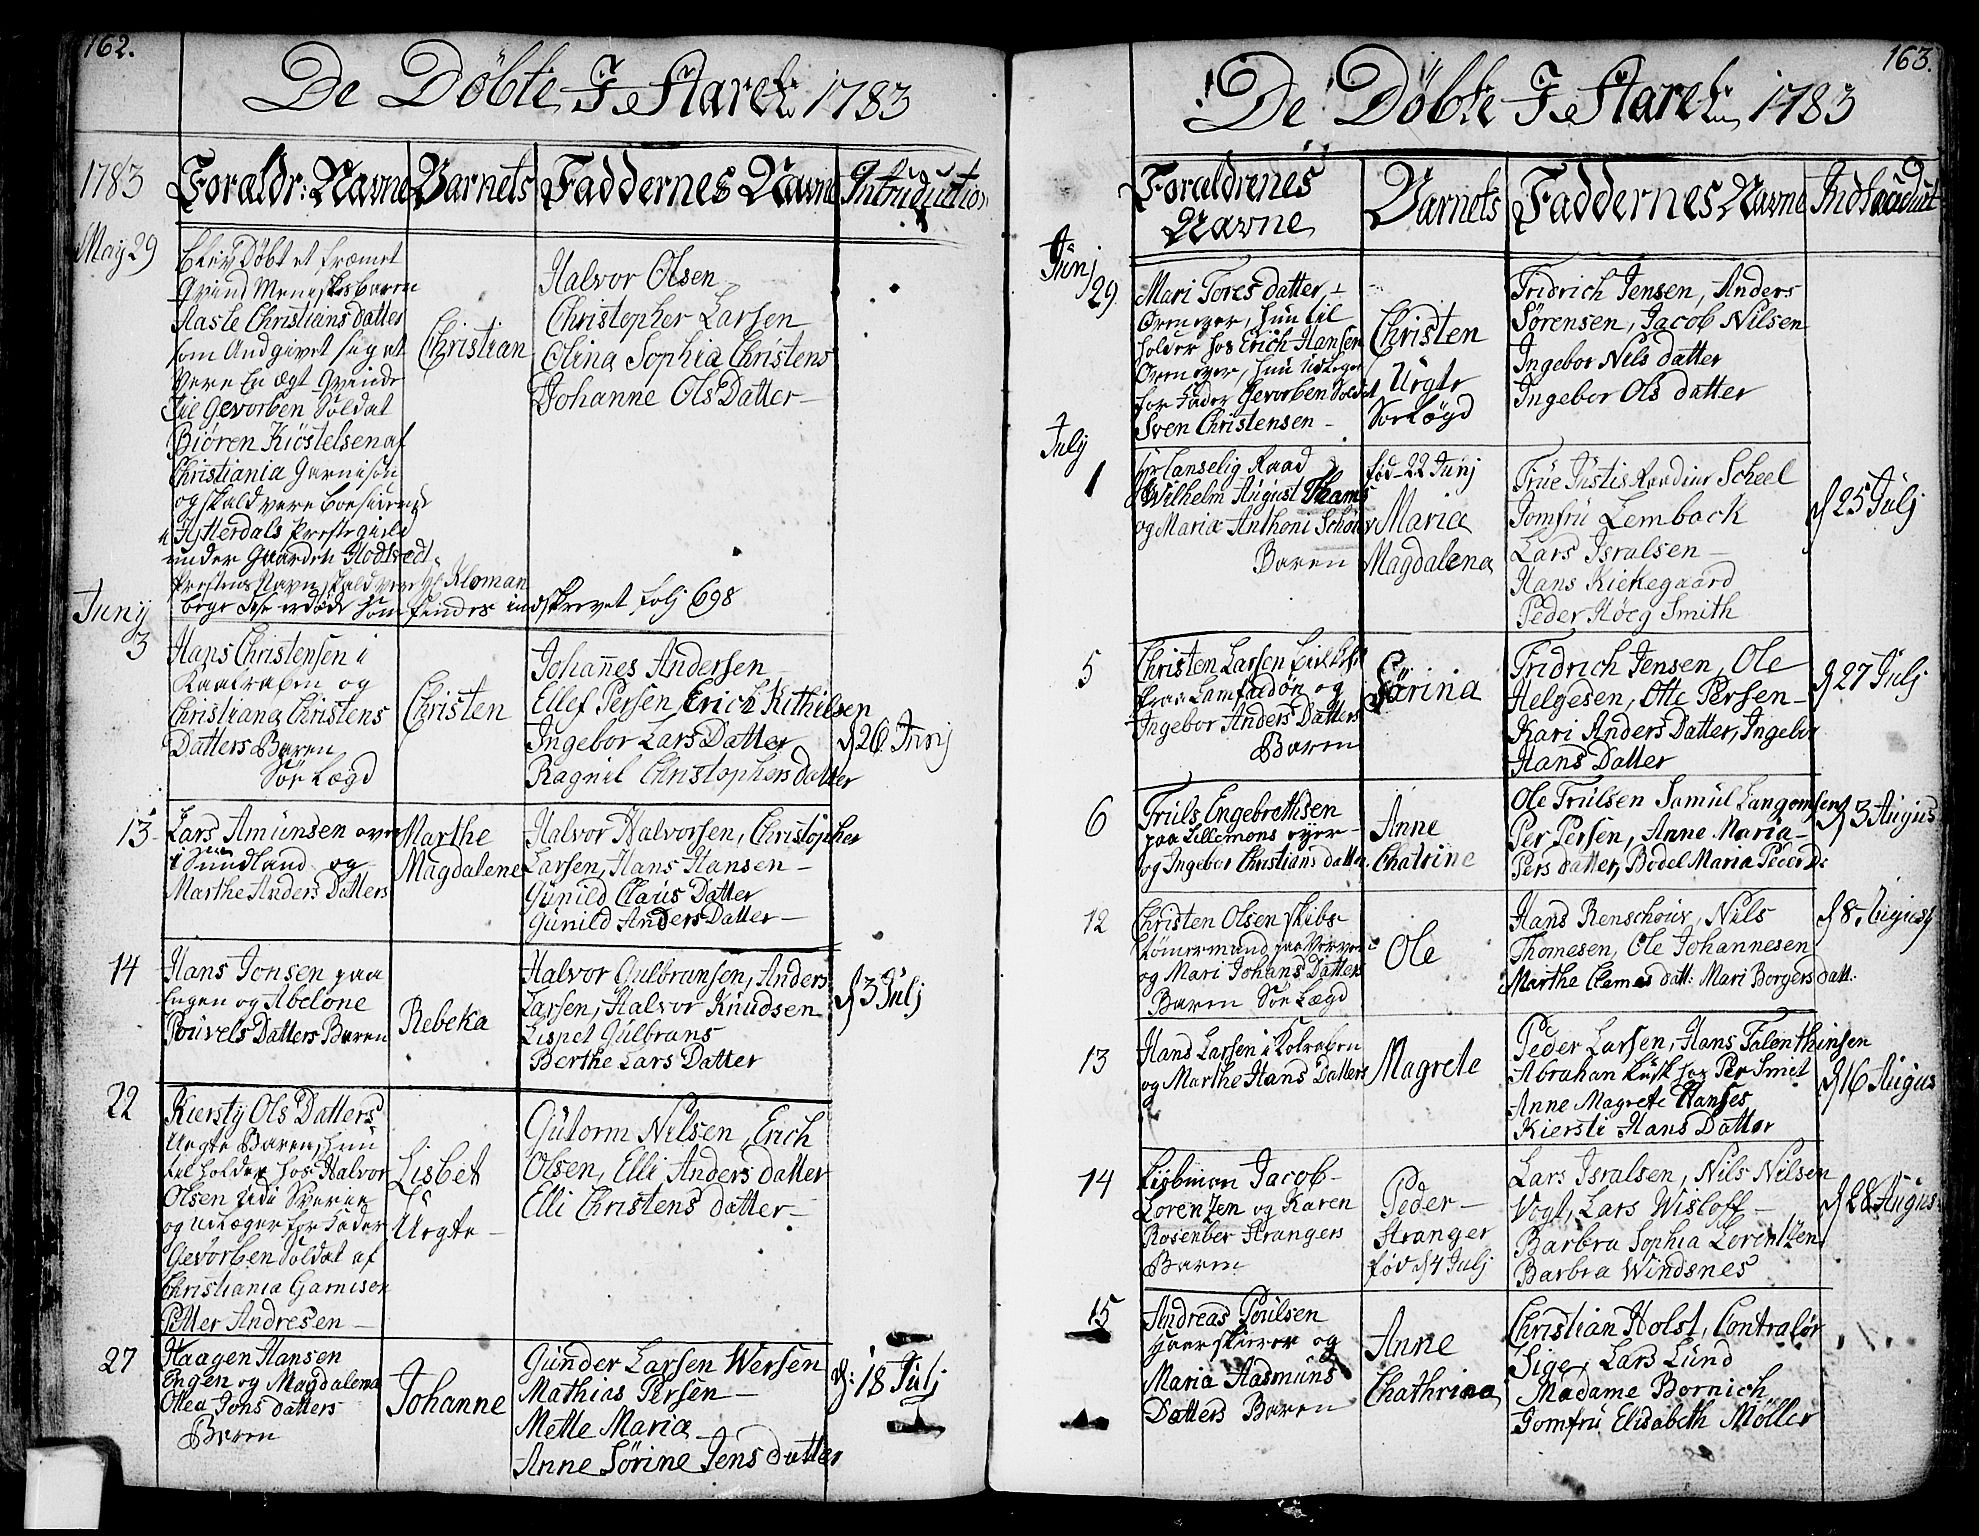 162.
De Döbte I Aaret 1783
1783
Foraldr: Navne
Barnets
Faddernes Navne
Introduction
May 29
Blev Döbt et fræmet
Qvind Meniskes Baren
Aaste Christians Datter
som Andgivet sig at
Vere En Ægt Qvinde
til Gevorben Soldat
Biören Kiöstelsen af
Christiania Garnison
og skald vere boesidende
i Hitterdals Prestegield
under Gaarden
Prestens Navn skald vere Hr Kloman
som findes indskrevet folj 698
Christian
Halvor Olsen
Christopher Larsen
Olina Sophia Christens
Johanne Ols Datter
Juny
3
Hans Christensen i
Kaatraben og
Christiana Christens
Datters Baren
Sör Lægd
Christen
Johannes Andersen
Ellef Persen Erich Kithilsen
Ingebor Lars Datter
Ragnil Christophers datter
d 26 Junj
13
Lars Amundsen over
i Sundland og
Marthe Anders Datters
Marthe
Magdalene
Halvor Halvorsen, Christopher
Larsen, Hans Hansen
Gunild Claus Datter
Gunild Anders Datter
14
Hans Jonsen paa
Engen og Abelone
Pouvels Datters Baren
Rebeka
Halvor Gulbransen, Anders
Larsen, Halvor Knudsen
Lispet Gulbrans
Berthe Lars Datter
d 3 Julj
22
Kiersty Ols Datters
Uegte Baren, hun
til holder hos Halvor
Olsen
og udlæger for Fader
Gevorben Soldat af
Christiania Garnison
Petter Andresen
Lisbet
Uegte
Gutorm Nilsen, Erich
Olsen, Elli Anders datter
Elli Christens datter
27
Haagen Hansen
Engen og Magdalena
Olea Jons datters
Baren
Johanne
Gunder Larsen Wersen
Mathias Persen
Mette Maria
Anne Sörine Jens datter
d: 18 Julj
163.
De Döbte I Aaret 1783
Foraldrenes
Navne
Barnets
Faddernes Navne
Introduct
Junj
29
Mari Tores datter
hun til
holder hos Erich Hansen
hun udleger
for Fader Gevorben Soldat
Sven Christensen
Christen
Uegte
Sör Lægd
Fridrich Jensen, Anders
Sörensen, Jacob Nilsen
Ingebor Nils datter
Ingebor Ols datter
July
1
Hr Canselig Raad
Wilhelm August Thams
og Maria Anthoni Schouw
Baren
föd 22 Junj
Maria
Magdalena
Frue Justis Raadinn Scheel
Jomfru Lemback
Lars Isralsen
Hans Kiekegaard
Peder Höeg Smith
d 25 Julj
5
Christen Larsen
og
Ingebor Anders Datters
Baren
Sörina
Fridrich Jensen, Ole
Helgesen, Otte Persen
Kari Anders Datter, Ingebor
Hans Datter
d 27 Julj
6
Truls Engebrethsen
paa Lillemons
og Ingebor Christians datter
Anne
Chatrine
Ole Trulsen Samul Langomsen
Per Persen, Anne Maria
Pers datter, Bodel Maria Peder D:
d 3 August
12
Christen Olsen Skibs
tömermand
og Mari Johans Datters
Baren Sör Lægd
Ole
Hans Renschouv, Nils
Thomesen, Ole Johannesen
Marthe Clemes datt: Mari Borgers datt:
d 8 August
13
Hans Larsen i Kolraben
og Marthe Hans Datters
Magrete
Peder Larsen, Hans Falenthinsen
Abrahan kusk hos Per Smit
Anne Magrete Hanses
Kiersti Hans Datter
d 16 Augus
14
Jacob
Lorentzen og Karen
Rosenber Strangers
Baren
Peder
Stranger
föd d 4 Julj
Lars Isralsen, Nils Nilsen
Vogt, Lars Wisloff
Barbra Sophia Lorentzen
Barbra Windsnes
d 28 Augus
15
Andreas Poulsen
og
Maria Rasmuns
Datters Baren
Anne
Chathrina
Christian Holst, Contralör
Sige, Lars Lund
Madame Bornich
Jomfru Elisabeth Möller